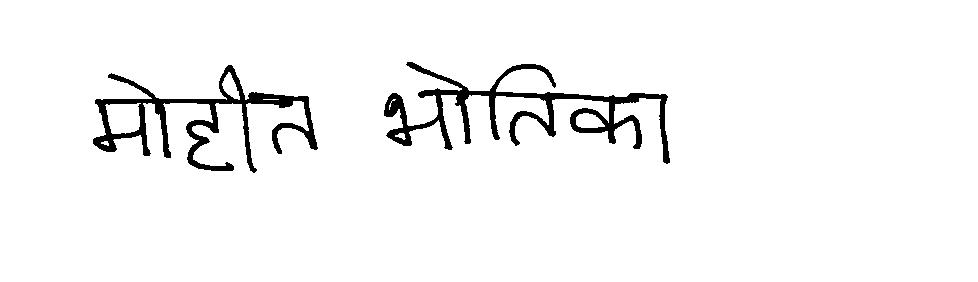 मोहीत भोतिका